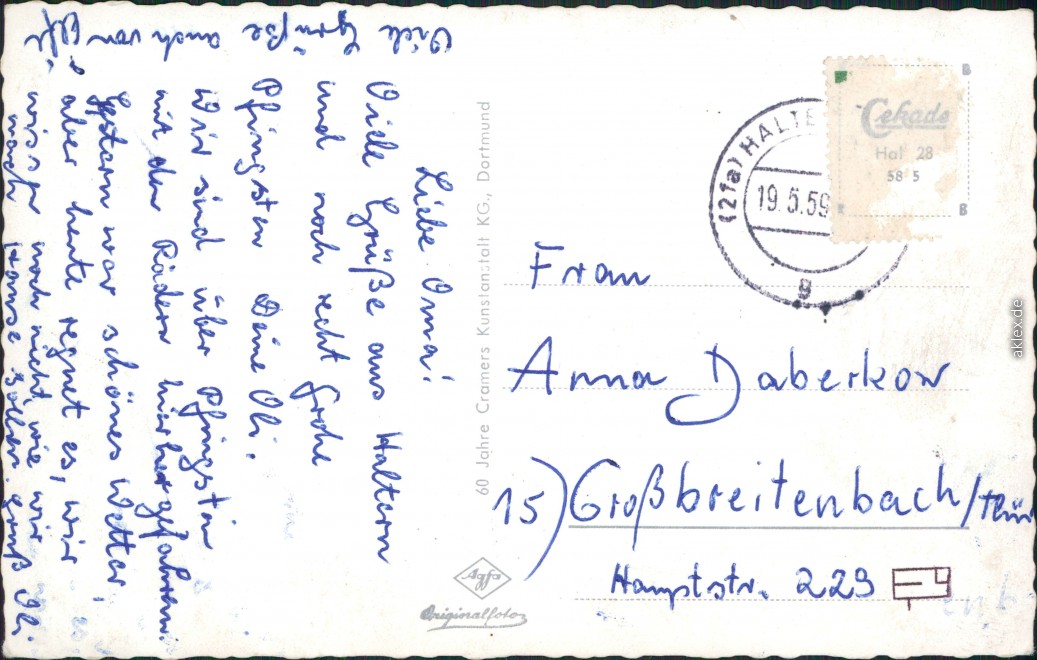 Viele Grüße auch von
Liebe Oma!
Viele Grüße aus Haltern
und noch recht frohe
Pfingsten Deine Oli.
Wir sind über Pfingsten
mit den Rädern hierher gefahren.
Gestern war schönes Wetter,
aber heute regnet es, wir
wissen noch nicht, wie wir
nach Hause sollen. Gruß Oli.
60 Jahre Cramers Kunstanstalt KG., Dortmund
Agfa
Originalfoto
(2fa) HALTE
19.5.59
g
Cekade
Hal 28
58 5
B
B
Frau
Anna Daberkow
15) Großbreitenbach/Thür
Hauptstr. 229
aklex.de